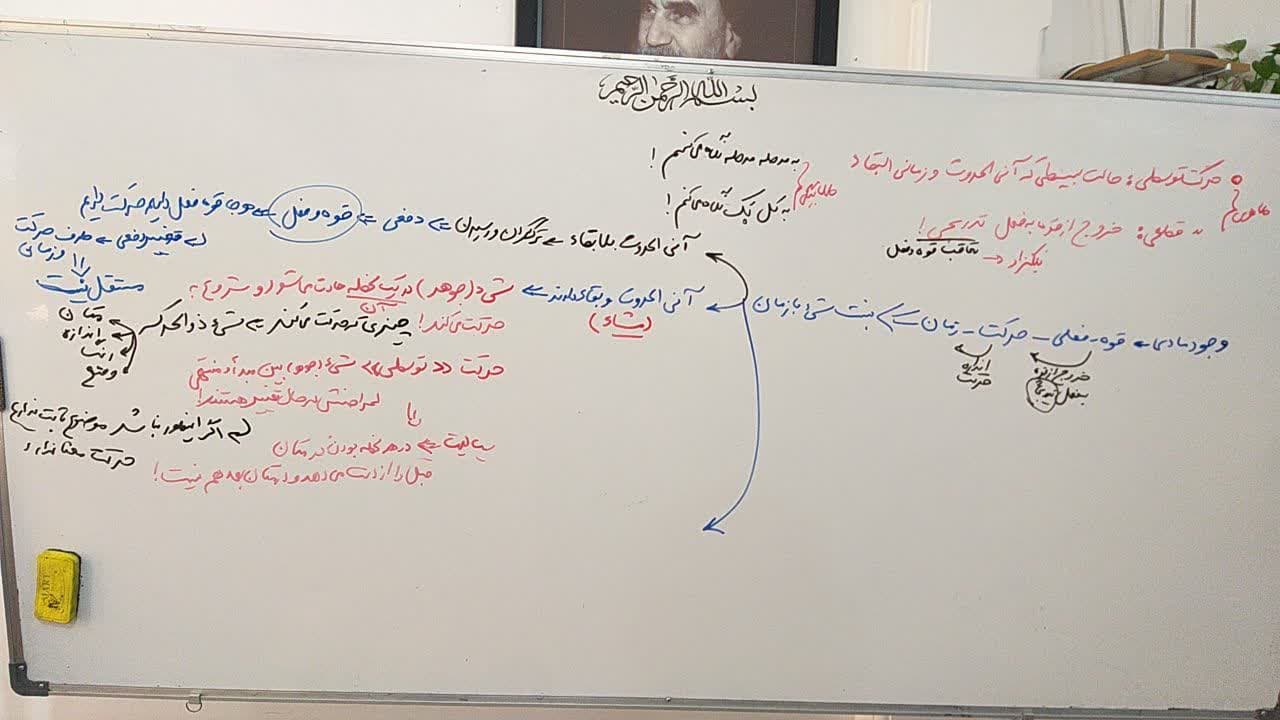 بسم الله الرحمن الرحیم
حرکت توسطی: حالت بسیطی که آنی الحدوث و زمانی البقاء
به مرحله مرحله نگاه می‌کنیم!
به کل یک نگاه می‌کنم!
قطعی: خروج از قوه به فعل تدریجی!
تعاقب قوه و فعل
آنی الحدوث بلا بقاء ← ترکران و رسیدن ← دفعی ← قوه و فعل ← هر جا قوه فعل داریم حرکت داریم
تغییر دفعی ← طرف حرکت
و زمانی
مستقل نیست
وجود مادی ← قوه - فعلی - حرکت - زمان ← نسبت شیء با زمان
خروج از قوه
به فعل تدریجاً
اندازه
حرکت
آنی الحدوث و بقاء دارند ← شیء (جوهر) در یک لحظه حادث می‌شود و شروع به
آن
(مشاء)
حرکت می‌کند! چیزی که حرکت می‌کند ← شیء ذو الحرکه
مکان
اندازه
وضع
حرکت توسطی ← شیء (جوهر) بین مبدأ و منتهی
اعراضش در حال تغییر هستند!
اگر اینطور نباشد موضوع ثابت نداریم
حرکت معنا ندارد
سیالیت ← در هر لحظه بودن در مکان
قبل را از دست می‌دهد و در مکان بعد هم نیست!